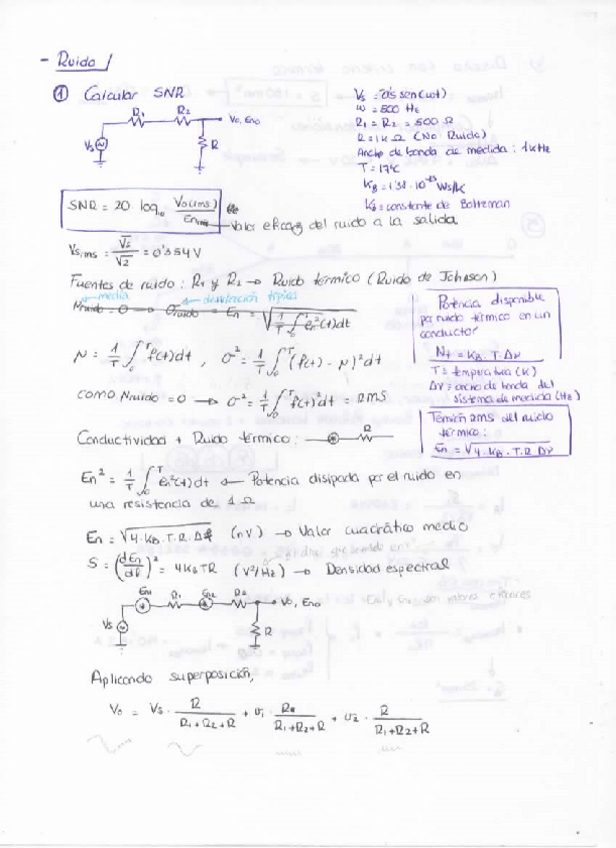 - Ruido
① Calcular SNR
R1 R2 Vo, Eno
Vs R
Vs = 0'5 sen(wt)
w = 500 Hz
R1 = R2 = 500 Ω
R = 1k Ω (No Ruido)
Ancho de banda de medida: 1kHz
T = 17ºC
KB = 1'38 · 10^-23 Ws/K
KB = constante de Boltzman
SNR = 20 log10 Vo(rms) / Enrms
Valor eficaz del ruido a la salida
Vs,rms = Vs/√2 = 0'354V
Fuentes de ruido: R1 y R2 → Ruido térmico (Ruido de Johnson)
media desviación típica
Nruido = 0 → σruido = En = √(1/T ∫₀ᵀ en²(t)dt)
μ = 1/T ∫₀ᵀ f(t)dt , σ² = 1/T ∫₀ᵀ (f(t) - μ)² dt
como Nruido = 0 → σ² = 1/T ∫₀ᵀ f(t)² dt = RMS
Potencia disponible
por ruido térmico en un
conductor
Nt = KB · T · Δν
T = temperatura (K)
Δν = ancho de banda del
sistema de medida (Hz)
Tensión RMS del ruido
térmico:
En = √4 · KB · T · R Δν
Conductividad + Ruido térmico: R
En² = 1/T ∫₀ᵀ en²(t)dt ← Potencia disipada por el ruido en
una resistencia de 1 Ω
En = √4 · KB · T · R · Δf (nV) → Valor cuadrático medio
S = (dEn/df)² = 4KBTR (V²/Hz) → Densidad espectral
En1 R1 En2 R2 Vo, Eno
Vs R
Aplicando superposición,
Vo = Vs · R/(R1+R2+R) + v1 · R/(R1+R2+R) + v2 · R/(R1+R2+R)